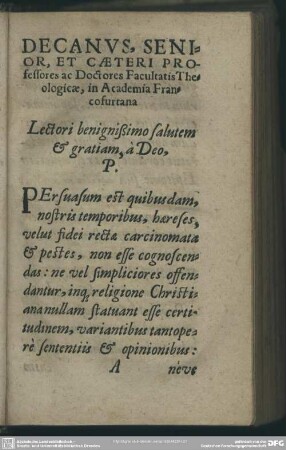 DECANVS, SENI-
OR, ET CÆTERI PRO-
fessores ac Doctores Facultatis The
ologicæ, in Academia Fran-
cofurtana
Lectori benignißimo salutem
& gratiam, à Deo,
P.
PErsuasum est quibusdam,
nostris temporibus, hæreses,
velut fidei rectæ carcinomata
& pestes, non esse cognoscen-
das: ne vel simpliciores offen-
dantur, inq; religione Christi-
ana nullam statuant esse certi-
tudinem, variantibus tantope-
rè sententiis & opinionibus:
A nève
DFG